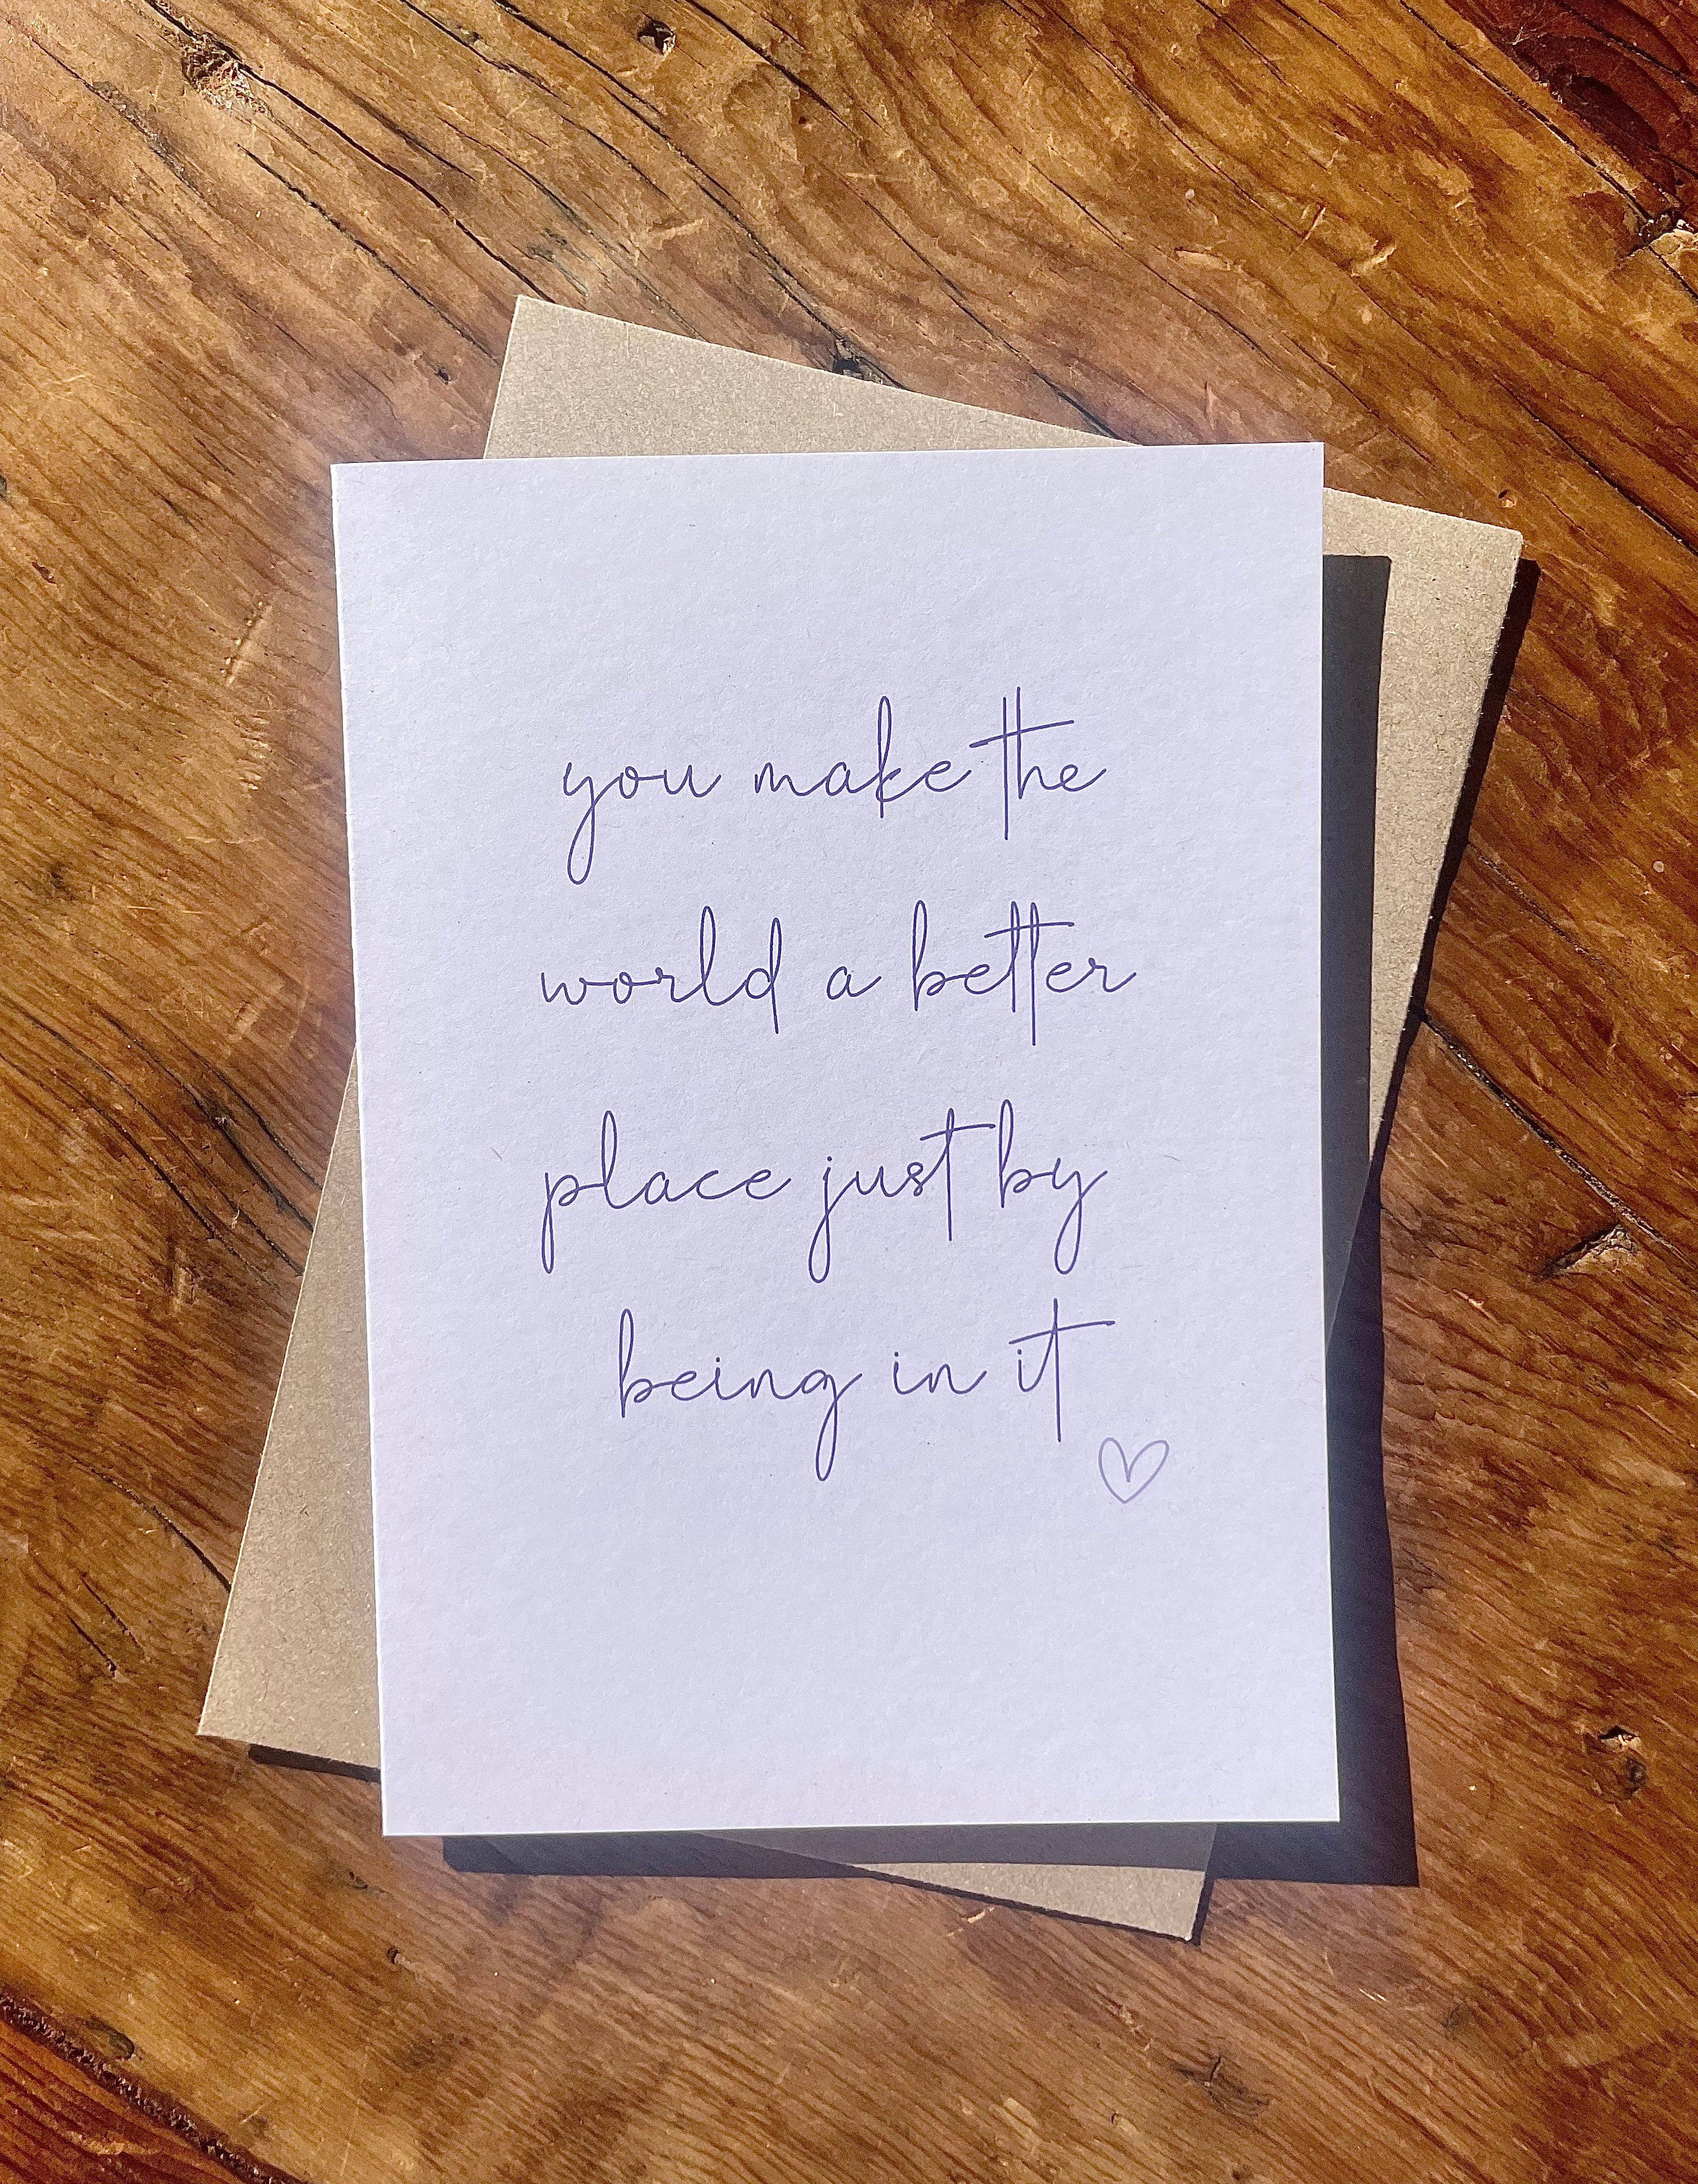 you make the
world a better
place just by
being in it